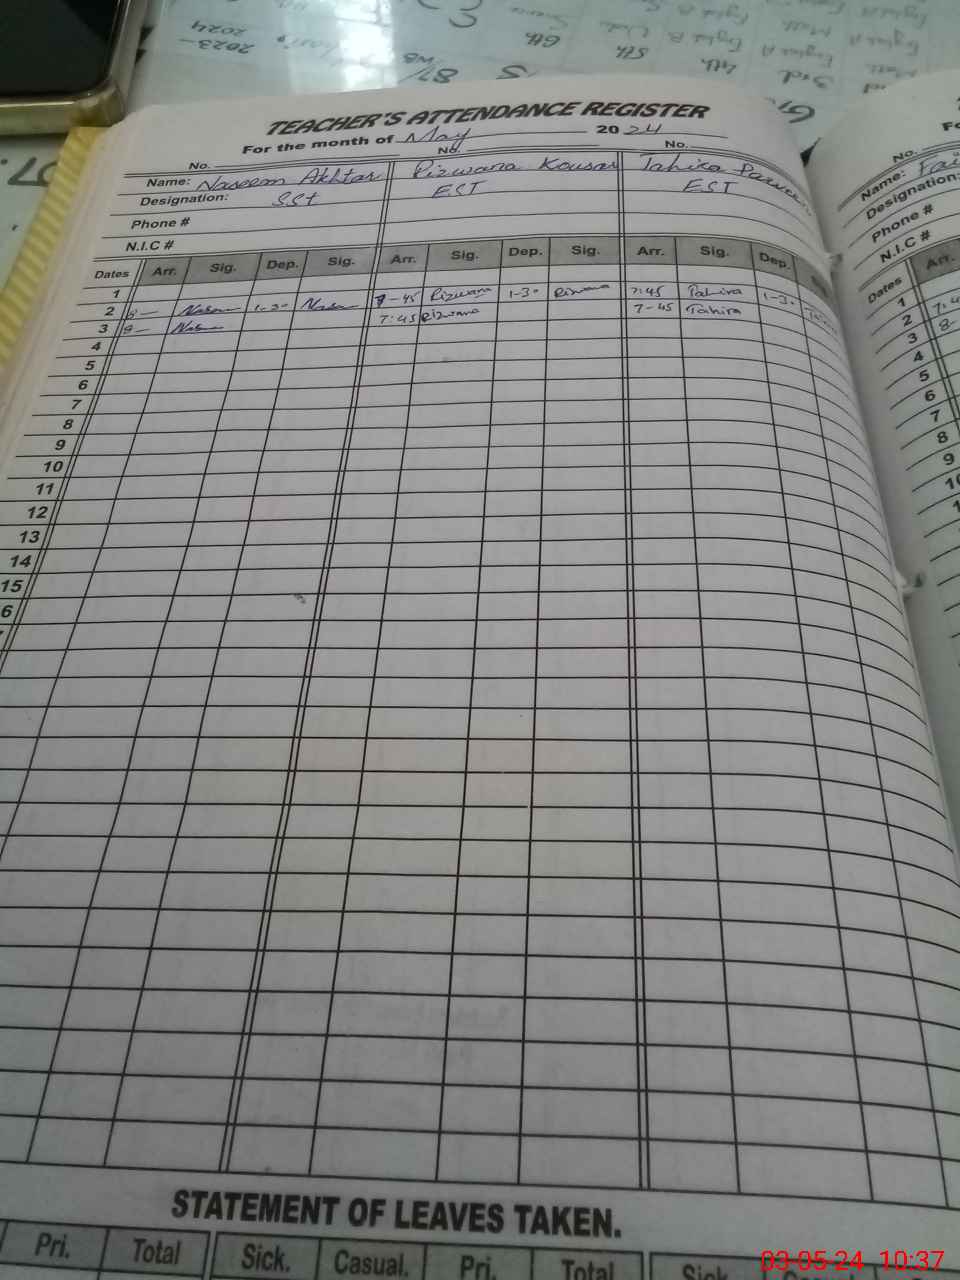 2023-
2024
5th
6th
4th
3rd
TEACHER'S ATTENDANCE REGISTER
For the month of May 2024
No. No. No.
Name: Naseem Akhtar Rizwana Kousar Tahira Parveen
Designation: SSt EST EST
Phone #
N.I.C #
Dates Arr. Sig. Dep. Sig. Arr. Sig. Dep. Sig. Arr. Sig. Dep.
1
2 8- Naseem 1-30 Naseem 7-45 Rizwana 1-30 Rizwana 7:45 Tahira 1-30 Tahira
3 8- Naseem 7:45 Rizwana 7-45 Tahira
4
5
6
7
8
9
10
11
12
13
14
15
6
STATEMENT OF LEAVES TAKEN.
Pri. Total Sick. Casual. Pri. Total Sick.
No.
Name:
Designation:
Phone #
N.I.C #
Dates Arr.
1
2
3 8-
4
5
6
7
8
9
03-05-24 10:37